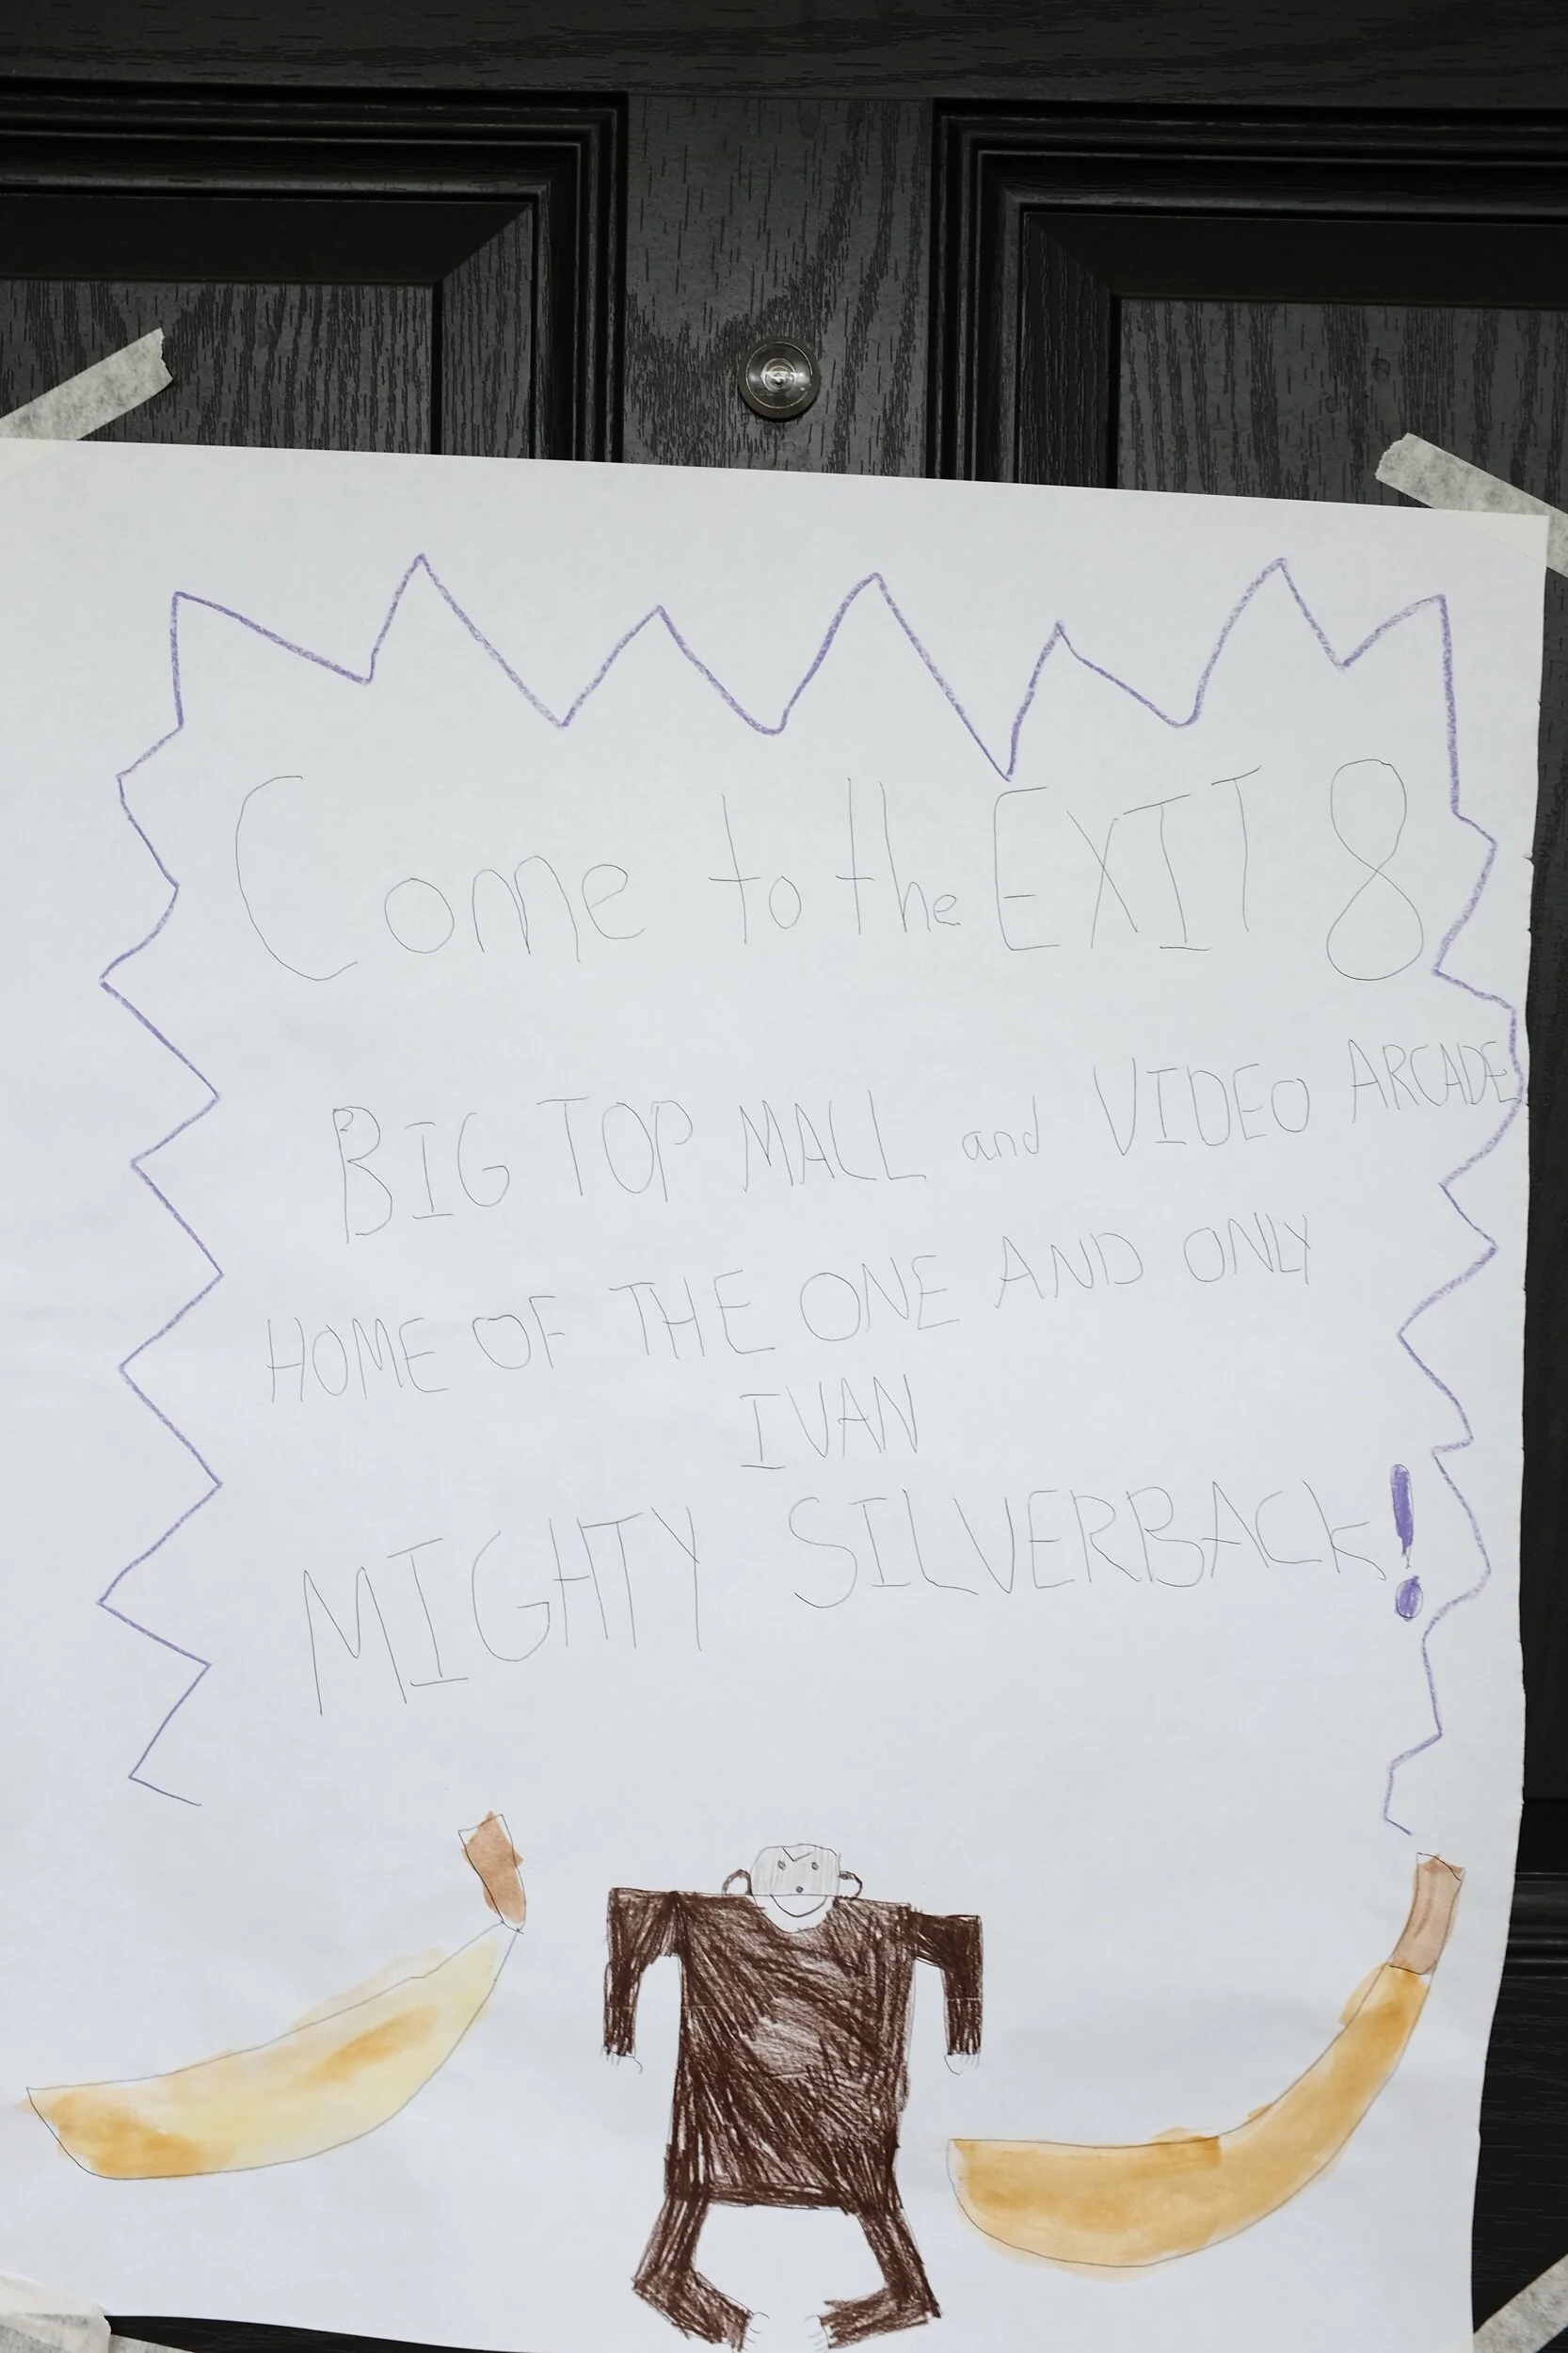 Come to the EXIT 8
BIG TOP MALL and VIDEO ARCADE
HOME OF THE ONE AND ONLY
IVAN
MIGHTY SILVERBACK!